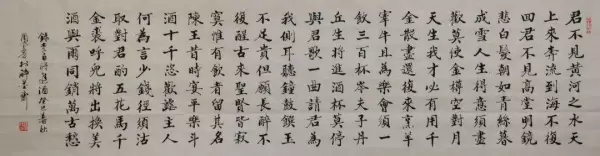 君不見黃河之水天
上來奔流到海不復
回君不見高堂明鏡
悲白髮朝如青絲暮
成雪人生得意須盡
歡莫使金樽空對月
天生我才必有用千
金散盡還復來烹羊
宰牛且為樂會須一
飲三百杯岑夫子丹
丘生將進酒杯莫停
與君歌一曲請君為
我側耳聽鐘鼓饌玉
不足貴但願長醉不
復醒古來聖賢皆寂
寞惟有飲者留其名
陳王昔時宴平樂斗
酒十千恣歡謔主人
何為言少錢徑須沽
取對君酌五花馬千
金裘呼兒將出換美
酒與爾同銷萬古愁
錄李白詩將進酒